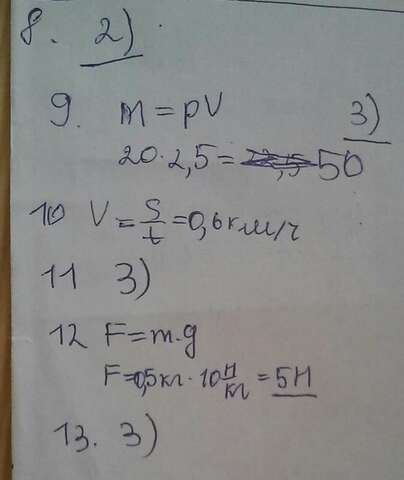 8. 2)
9. m = pV 3)
20 · 2,5 = 50
10 V = S/t = 0,6 км/ч
11 3)
12 F = m·g
F = 0,5 кг · 10 Н/кг = 5Н
13. 3)